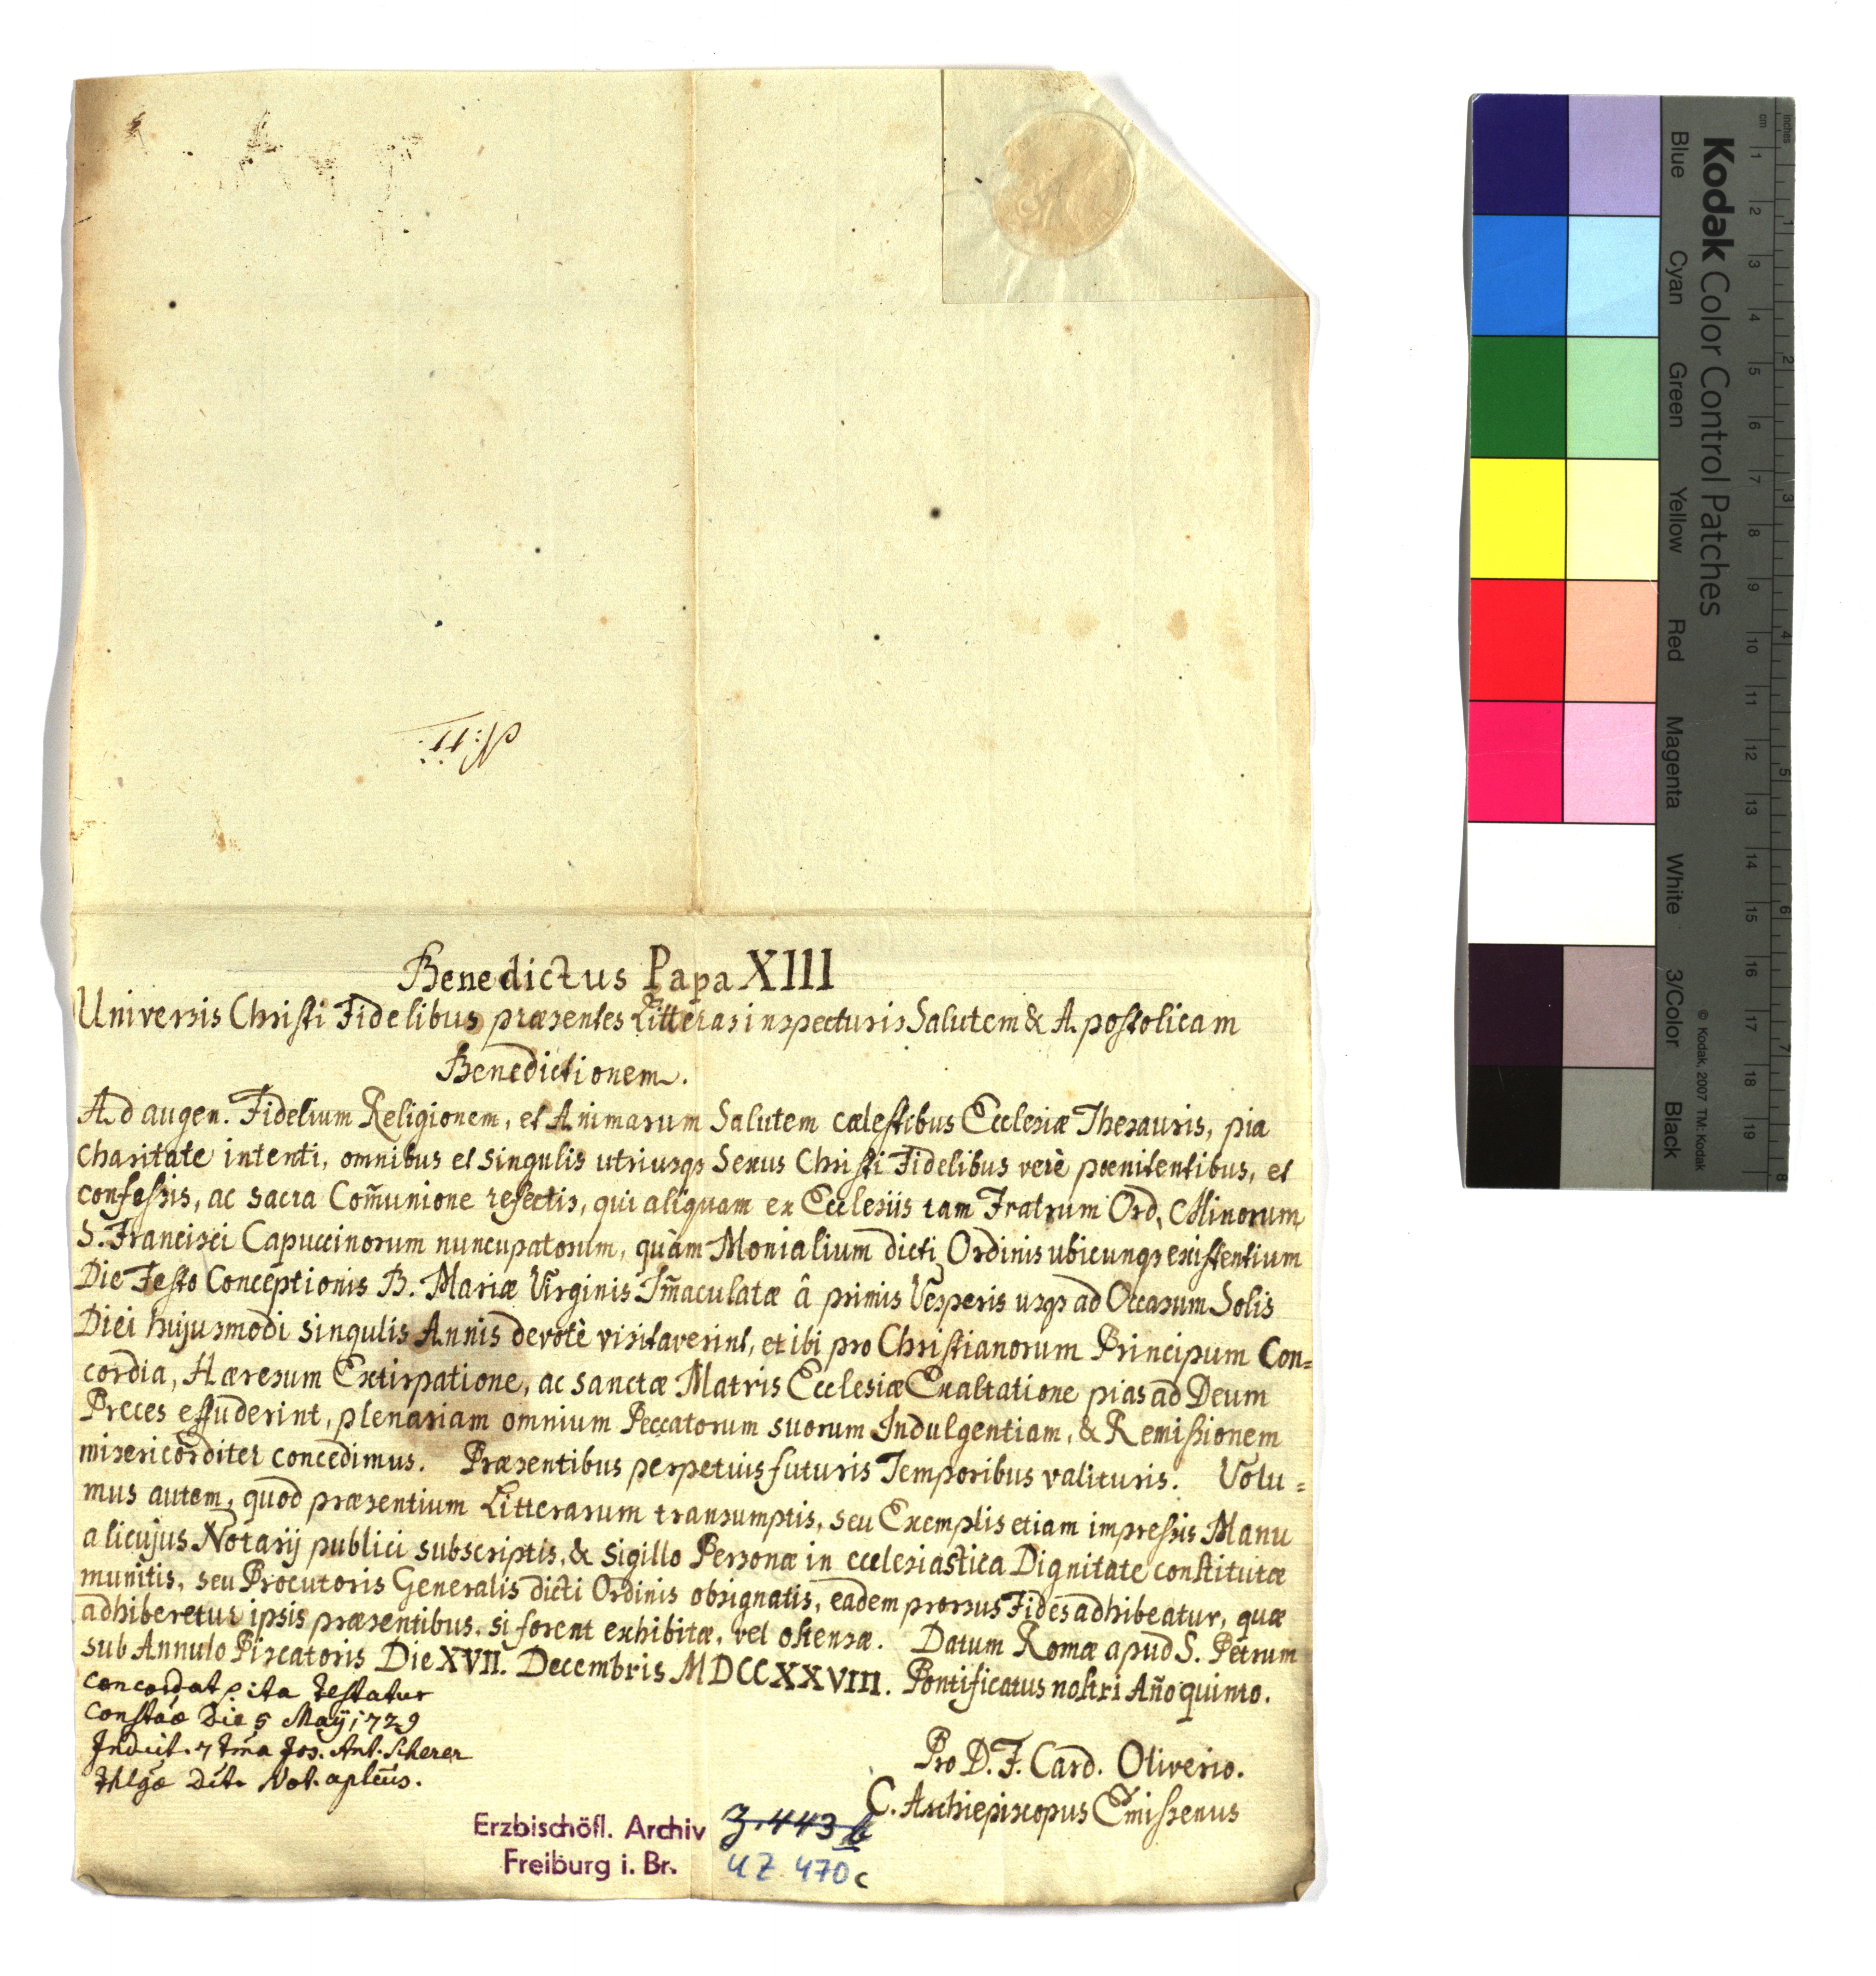 N: 11:
Benedictus Papa XIII
Universis Christi Fidelibus præsentes Litteras inspecturis Salutem & Apostolicam
Benedictionem.
Ad augen. Fidelium Religionem, et Animarum Salutem cælestibus Ecclesiæ Thesauris, pia
charitate intenti, omnibus et singulis utriusqs Sexus Christi Fidelibus verè pœnitentibus, et
confessis, ac sacra Com̃unione refectis, qui aliquam ex Ecclesiis tam Fratrum Ord. Minorum
S. Francisci Capuccinorum nuncupatorum, quàm Monialium dicti Ordinis ubicunqs existentium
Die Festo Conceptionis B. Mariæ Virginis Im̃aculatæ â primis Vesperis usqs ad Occasum Solis
Diei hujusmodi singulis Annis devotè visitaverint, et ibi pro Christianorum Principum Con=
cordia, Hæresum Extirpatione, ac sanctæ Matris Ecclesiæ Exaltatione pias ad Deum
Preces effuderint, plenariam omnium Peccatorum suorum Indulgentiam, & Remissionem
misericorditer concedimus. Præsentibus perpetuis futuris Temporibus valituris. Volu=
mus autem, quod præsentium Litterarum transumptis, seu Exemplis etiam impressis Manu
alicujus Notarij publici subscriptis, & Sigillo Personæ in ecclesiastica Dignitate constitutæ
munitis, seu Procutoris Generalis dicti Ordinis obsignatis, eadem prorsus Fides adhibeatur, quæ
adhiberetur ipsis præsentibus, si forent exhibitæ, vel ostensæ. Datum Romæ apud S. Petrum
sub Annulo Piscatoris Die XVII. Decembris MDCCXXVIII. Pontificatus nostri Año quinto.
Concordat, ita testatur
Constãæ Die 5 Maÿ 1729
Indict. 7 tma Jos. Ant. Scherer
Not. aplcus.
Pro D. F. Card. Oliverio.
C. Archiepiscopus Emissenus
Erzbischöfl. Archiv
Freiburg i. Br.
Z. 443 b
UZ 470c
Kodak Color Control Patches
© Kodak, 2007 TM: Kodak
Blue Cyan Green Yellow Red Magenta White 3/Color Black
cm 1 2 3 4 5 6 7 8 9 10 11 12 13 14 15 16 17 18 19
inches 1 2 3 4 5 6 7 8